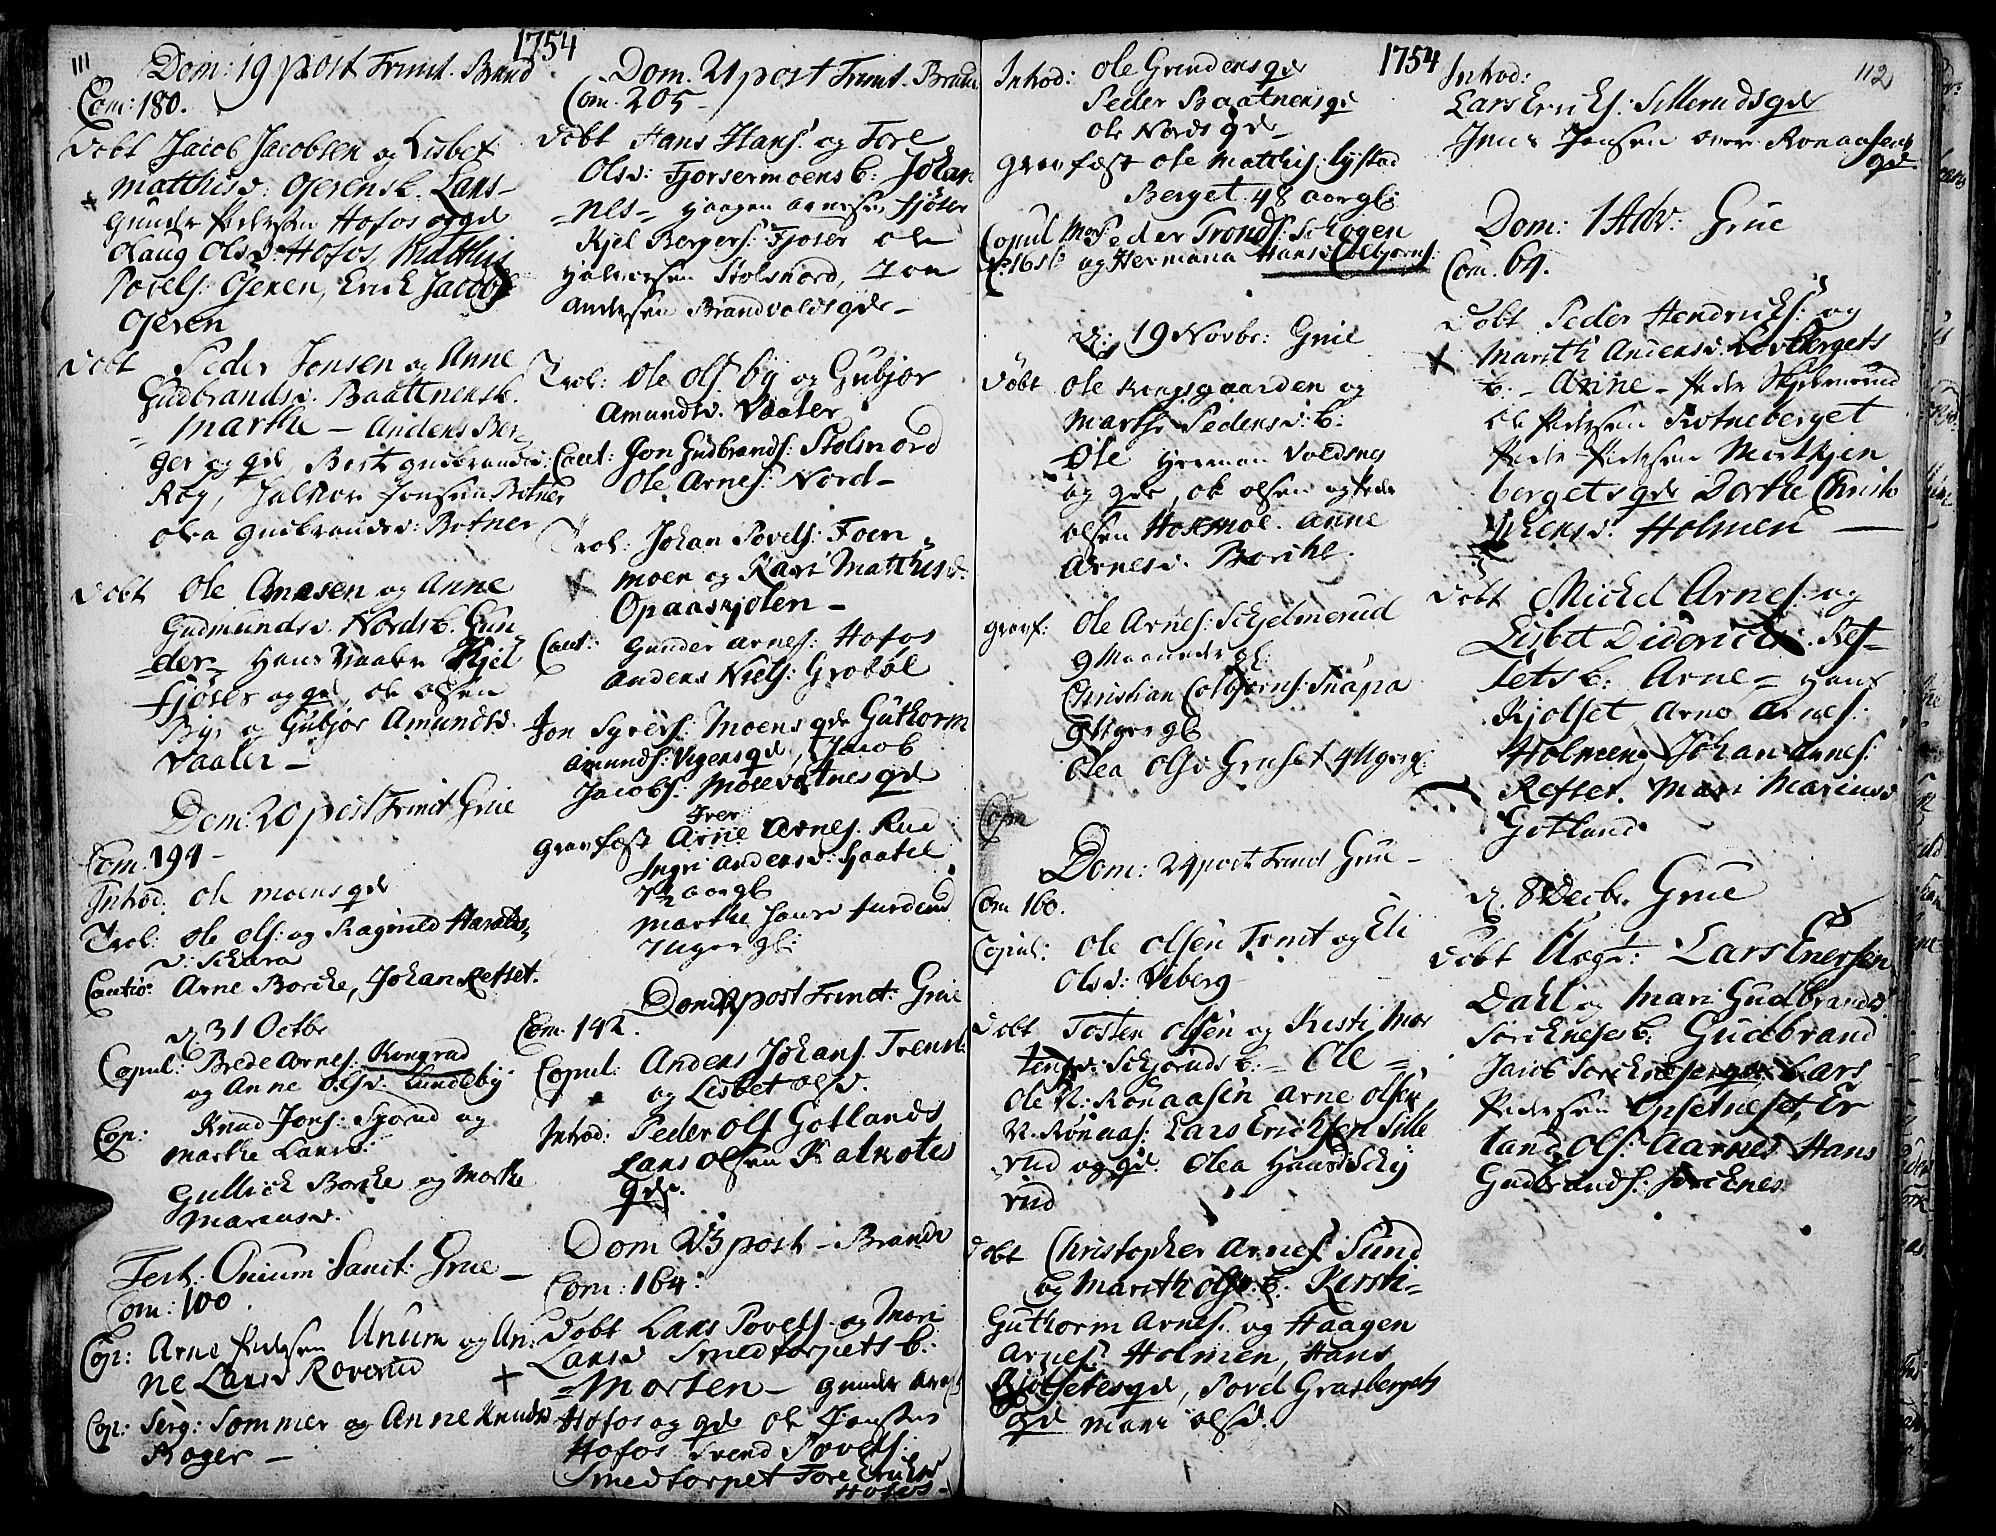 111
1754
Dom: 19 post Trinit. Brand
Com: 180.
Døbt Jacob Jacobsen og Lisbet
Matthisd: Gerensb. Lars-
Gunder Pedersen Hofos og qde
Olaug Olsd: Hofos, Matthis
Povels: Geren, Erick Jacobs:
Geren
Døbt Peder Jonsen og Anne
Gudbrandsd. Baattnensb.
= Marthe - Anders Ber-
ger og qde, Berte Gudbrandsd:
Røg, Halvor Jonsen Botner
Olea Gudbrandsd: Botner
Døbt Ole Arnesen og Anne
Gudmundsd. Nordsb. Gun
der- Hans Vaaler Kjel
Fjøser og qde, Ole Olsen
Bye og Gubjør Amundsd.
Vaaler -
Dom: 20 post Trinit Grue
Com. 194 -
Introd. Ole Moens qde
Trol: Ole Ols: og Ragnild Haralds-
d: Skara
Cautio: Arne Borche, Johan Refset.
d. 31 Octbr
Copul: Brede Arnes. Kongrad
og Anne Olsd. Lundeby
Cop: Knud Jons: Sjørud og
Marthe Larsd:
Gullich Borche og Marthe
Mariusd.
Fest: Omium Sanct: Grue -
Com: 100.
Cop: Arne Pedersen Unum og An-
ne Larsd Roverud
Cop: Serg: Sommer og Anne Knudsd
Roger -
Dom. 21 post Trinit. Brand
Com. 205 -
Døbt Hans Hans: og Tore
Olsd: Fjorsermoens b: Johan
nes - Haagen Arnesen Fjøser
Kjel Bergers: Fjøser Ole
Halvorsen Stolsnord, Jon
Andersen Brandvolds qde -
Trol: Ole Ols By og Gubjør
Amundsd. Vaaler
Caut: Jon Gudbrands: Stolsnord
Ole Arnes: Nord -
Trol: Johan Povels: Foen-
moen og Kari Matthisd:
Opaaskjolen -
Caut: Gunder Arnes: Hofos
Anders Niels: Grobøl
Jon Syvers: Moens qde Guthorm
Amunds: Vigens qde, Jacob
Jacobs: Morevatnes qde
Iver
Gravfæst Arne Arnes. Rud
Ingri Andersd: Haatil
7½ aar gl:
Marthe Hansd Furderud
7 Uger gl:
Dom 22 post Trinit: Grue
Com. 142.
Copul: Anders Johans. Trend.
og Lisbet Olsd.
Introd: Peder Ols Gotlands
Lars Olsen Kalnotes
qde.
Dom 23 post - Brande
Com: 164:
Døbt Lars Povels. og Mari
Larsd Smedtorpets b:
= Morten - Gunder Arnes
Hofos og qde Ole Jensens
Hofos Svend Povels:
Smedtorpet Tore Ericksd
Hofos -
1754
112
Introd: Ole Grindens qde
Peder Baatnens qde
Ole Nords qde
Gravfæst Ole Matthis: Lystad
Berget 48 aar gl:
Copul Mos. Peder Trond: Schøgen
og Hermana Hansd Colbjørns:
d: 19 Novbr: Grue
Døbt Ole Kongsgaarden og
Marthe Pedersd: b.
Ole Herman Voldsnes
og qde, Ole Olsen og Peder
Olsen Hokmoe. Anne
Arnesd. Borche.
Gravf: Ole Arnes: Schjelmerud
9 Maaneder gl:
Christian Colbjørns: Snapa
9 Uger gl:
Olea Olsd Gruset 4 Uger gl:
Copu
Dom: 24 post Trinit Grue -
Com 160.
Copul: Ole Olsen Trnt og Eli
Olsd: Viberg
Døbt Tosten Olsen og Kersti Mor
tensd: Schjøruds b: - Ole =
Ole N: Rønaasen Arne Olsen
N. Rønaas: Lars Ericksen Sille
rud og qde. Olea Hansd Schy
rud
Døbt Christopher Arnes: Sund
og Marith Olsd. b: Kersti-
Guthorm Arnes. og Haagen
Arnes: Holmen, Hans
Kjolsetes qde, Povel Grasbergets
qde Mari Olsd.
Introd:
Lars Ericks: Sillerudsqde
Jens Jensen over Rønaasens
qde.
Dom: 1 Adv: Grue
Com. 64.
Døbt Peder Hendricks: og
Marith Andersd. Lovbergets
b: - Anne - Peder Skjelmerud
Ole Pedersen Rotneberget
Peder Pedersen Mortkjen
bergets qde Dorthe Christo
phersd: Holmen -
Døbt Michel Arnes: og
Lisbet Didericks: Ref-
sets b: Arne = Hans
Kjolset, Arne Arnes:
Holmeng Johan Arnes:
Refset. Mari Mariusd
Gotland.
d. 8 Decbr. Grue
Døbt Uægt: Lars Enersen
Dahl og Mari Gudbrandsd.
Sorcknæses b: Gudbrand
Jacob Sorcknæsenget Lars
Pedersen Opsetneset, Er
land Ols: Aarnes Hans
Gudbrands: Sorcknes